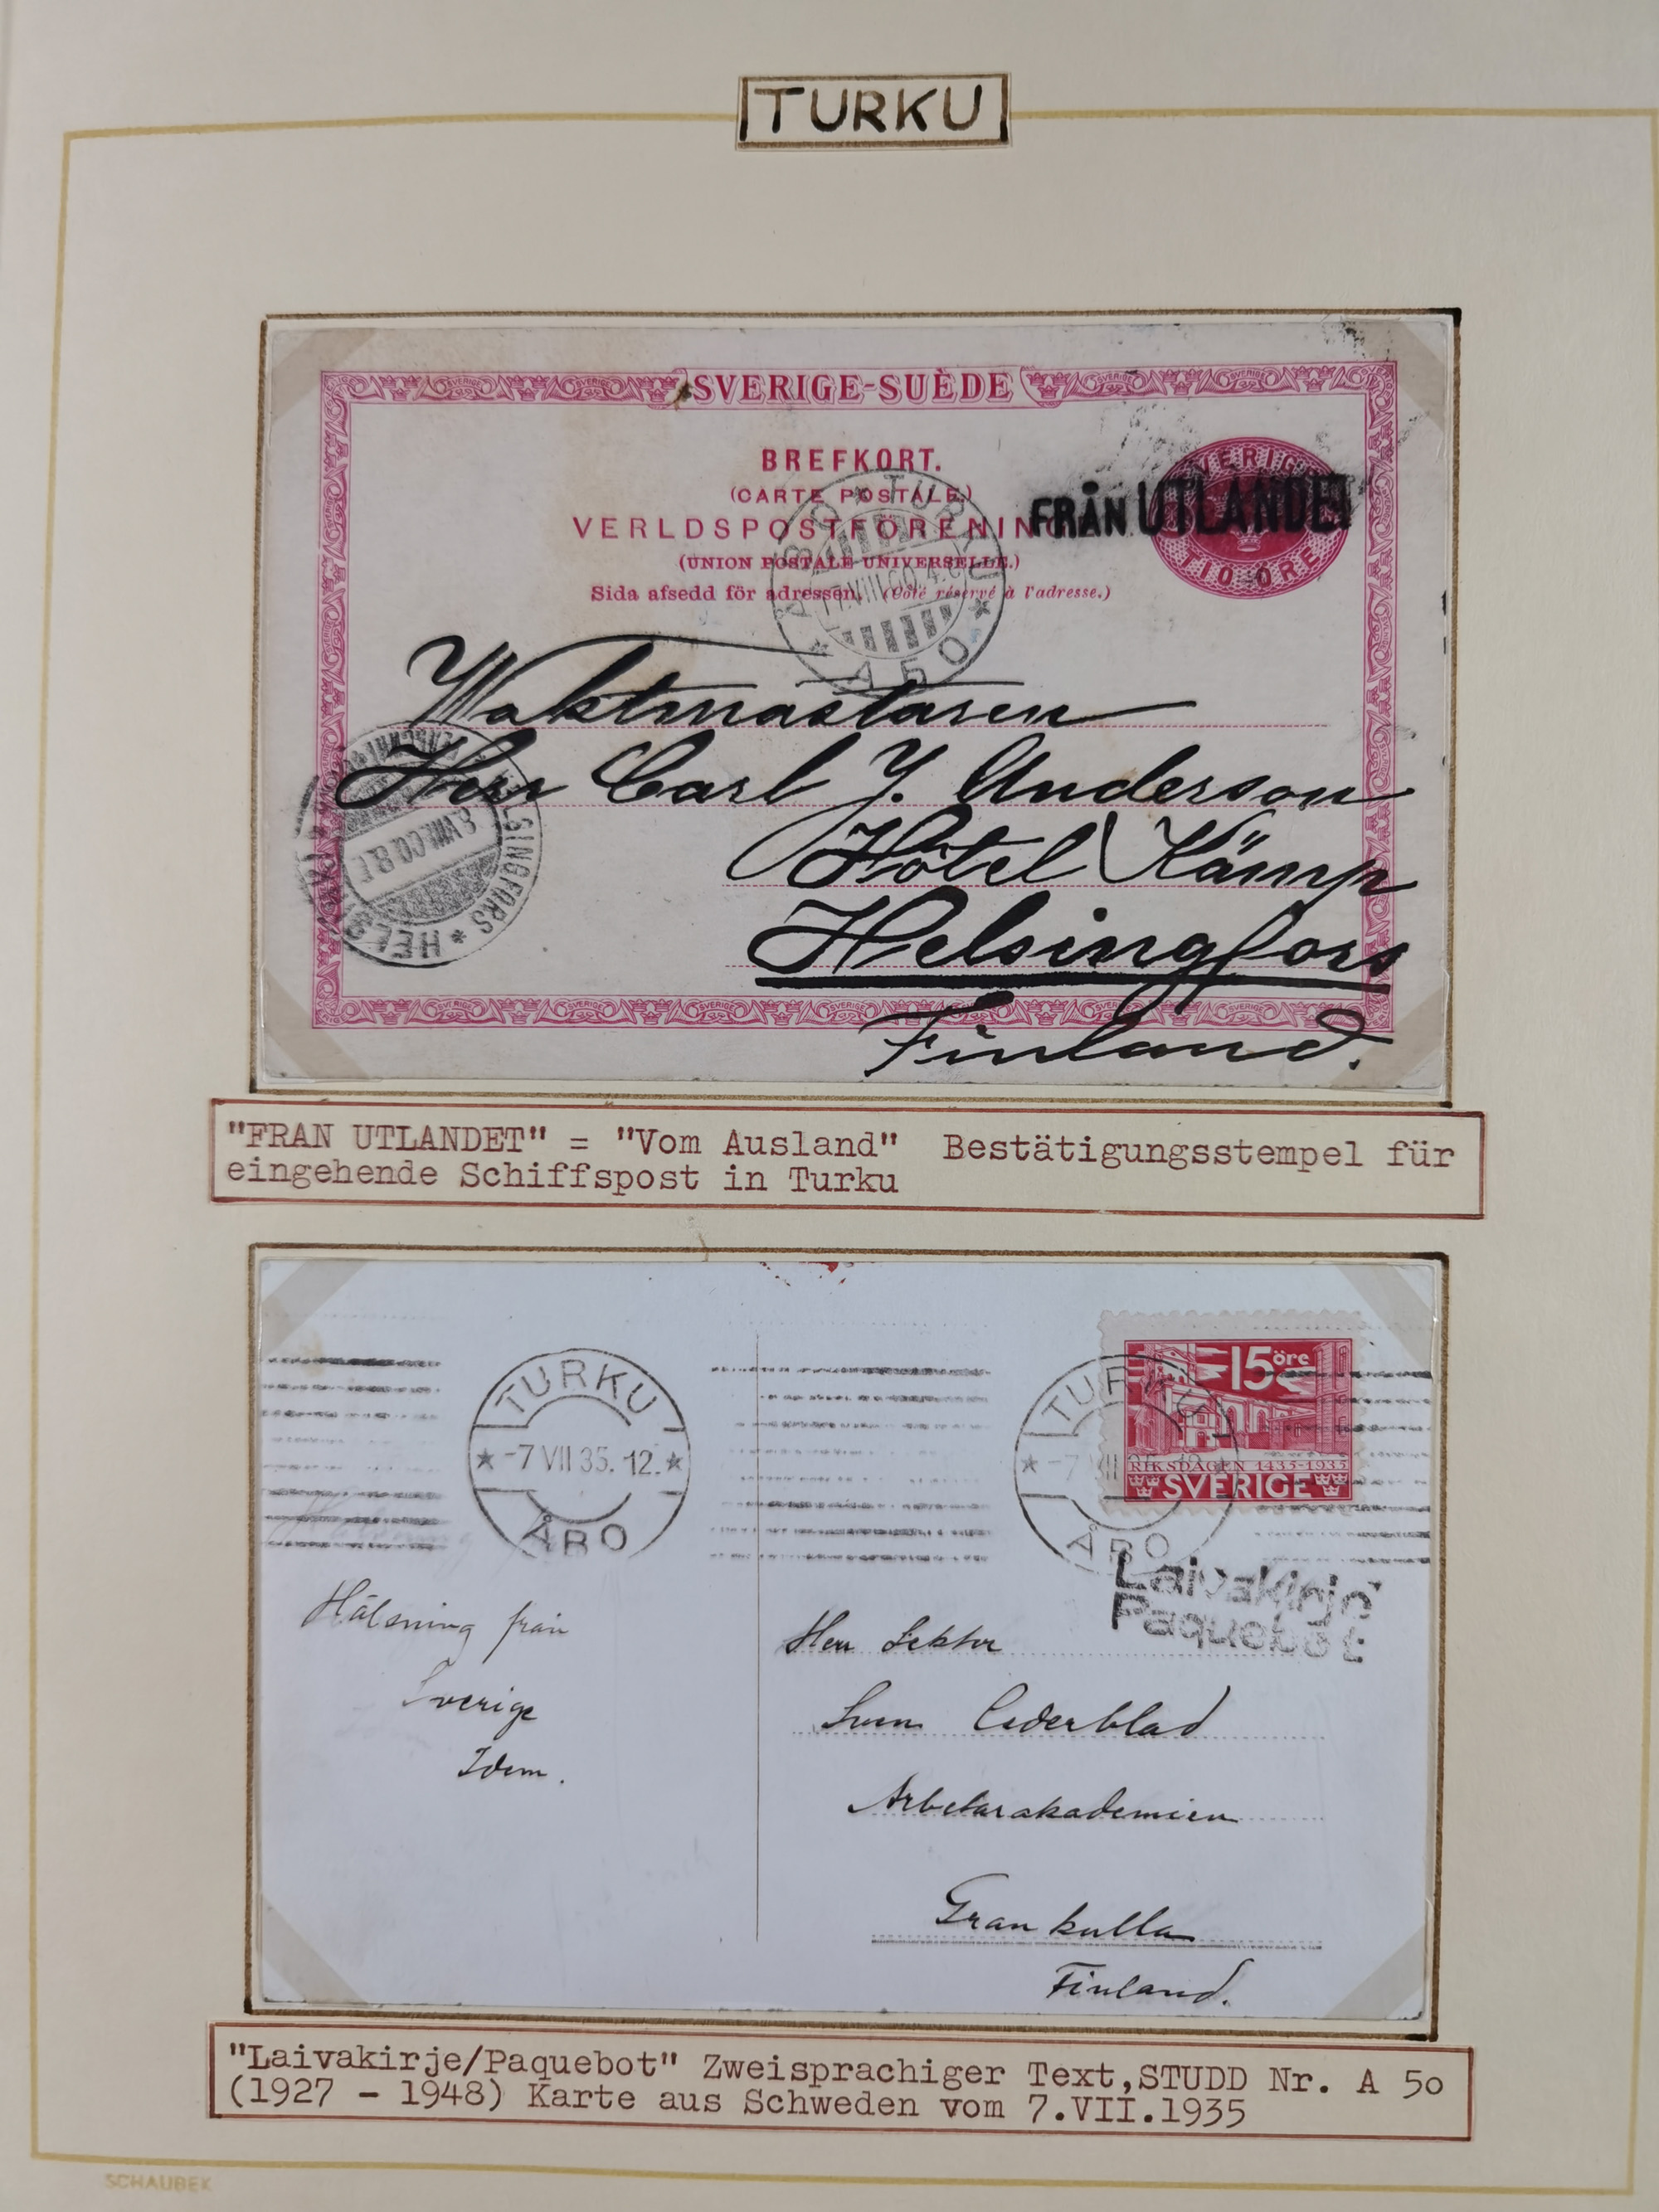 TURKU
SVERIGE-SUÈDE
BREFKORT.
(CARTE POSTALE)
VERLDSPOSTFÖRENING
(UNION POSTALE UNIVERSELLE.)
Sida afsedd för adressen. (Côté réservé à l'adresse.)
SVERIGE
TIO ÖRE
FRÅN UTLANDET
ÅBO * TURKU
7.VIII.00
АБО
Waktmästaren
Herr Carl J. Anderson
Hôtel Kämp
Helsingfors
Finland.
HELSINGFORS * HELSINKI
8.VIII.00
"FRAN UTLANDET" = "Vom Ausland" Bestätigungsstempel für
eingehende Schiffspost in Turku
TURKU
* -7 VII 35. 12. *
ÅBO
TURKU
ÅBO
15 öre
RIKSDAGEN 1435-1935
SVERIGE
Laivakirje
Paquebot
Hälsning från
Sverige
Idem.
Herr Lektor
Sven Cederblad
Arbetarakademien
Grankulla
Finland.
"Laivakirje/Paquebot" Zweisprachiger Text,STUDD Nr. A 50
(1927 - 1948) Karte aus Schweden vom 7.VII.1935
SCHAUBEK